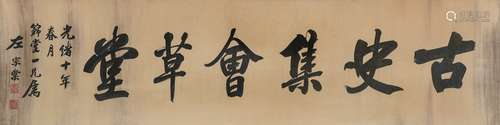 古史集會草堂
光緒十年
春月
錦堂一兄屬
左宗棠